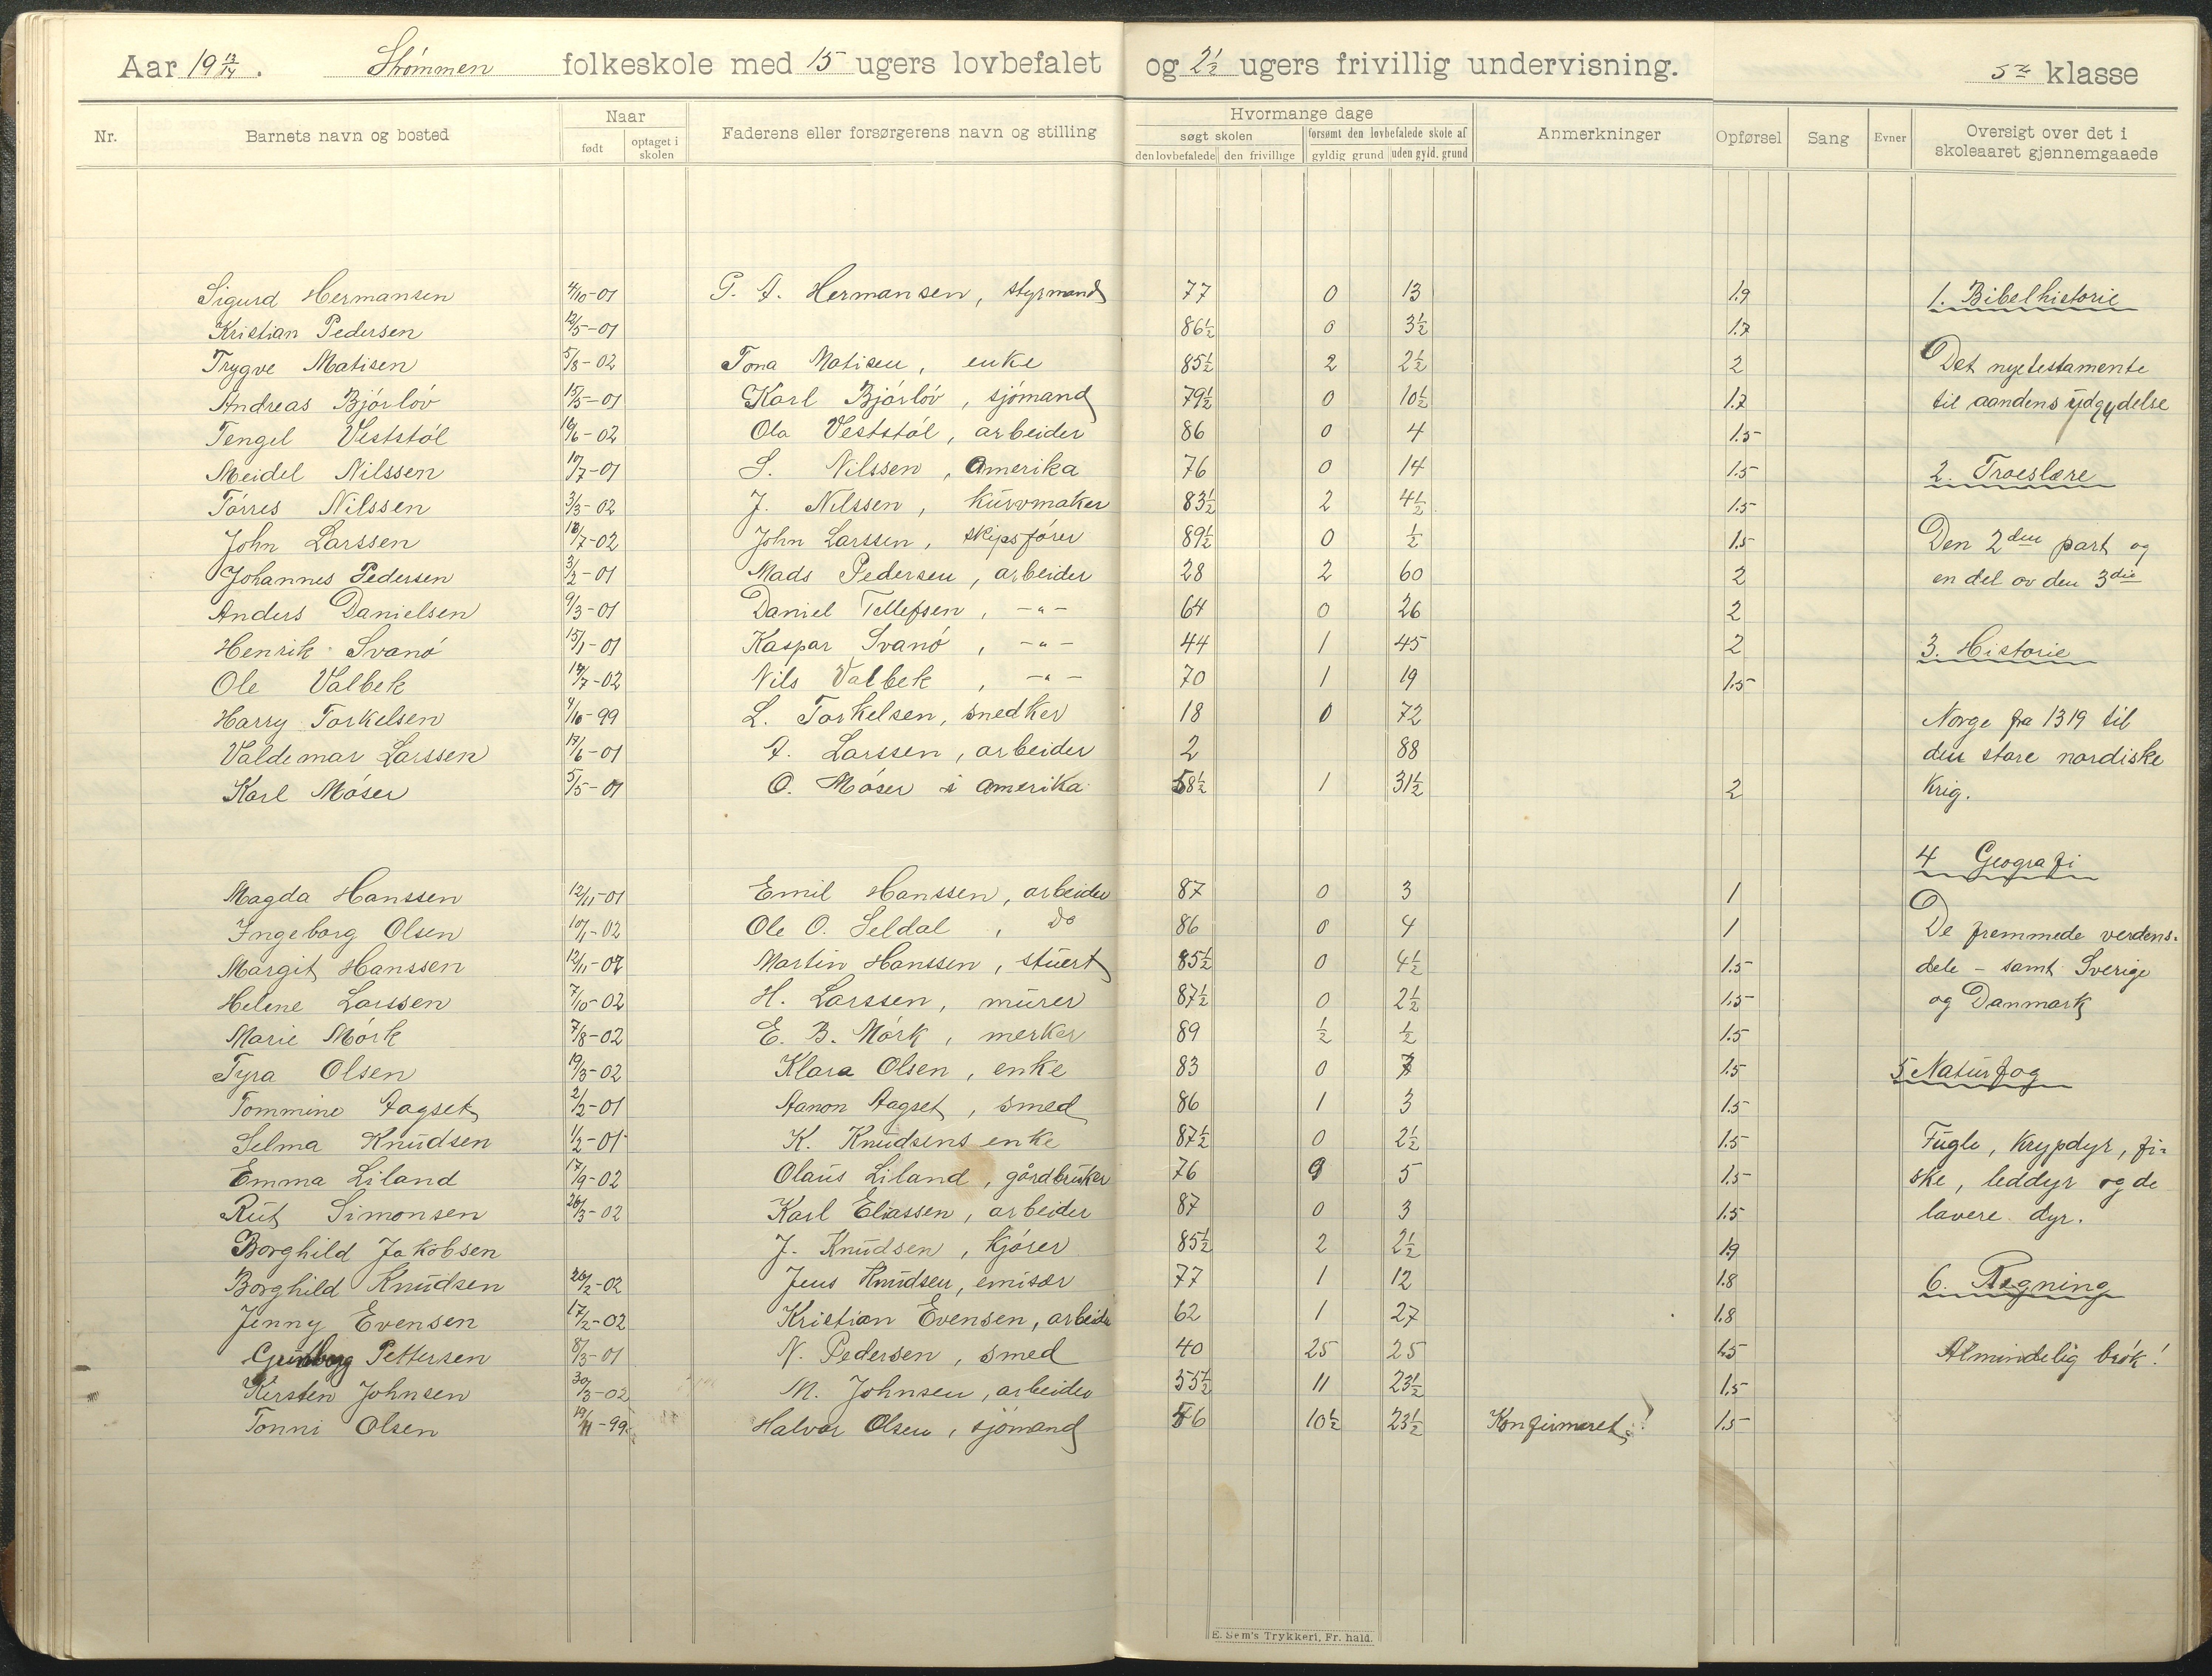 Aar 19 13/14. Strømmen folkeskole med 15 ugers lovbefalet og 2½ ugers frivillig undervisning. 5te klasse
Nr. Barnets navn og bosted Naar født optaget i skolen Faderens eller forsørgerens navn og stilling Hvormange dage søgt skolen den lovbefalede den frivillige forsømt den lovbefalede skole af gyldig grund uden gyld. grund Anmerkninger Opførsel Sang Evner Oversigt over det i skoleaaret gjennemgaaede
Sigurd Hermansen 4/10-01 G. A. Hermansen, styrmand 77 0 13 1.9 1. Bibelhistorie
Kristian Pedersen 12/5-01 86½ 0 3½ 1.7
Trygve Matisen 5/8-02 Tona Matisen, enke 85½ 2 2½ 2 Det nye testamente
Andreas Bjórlóv 15/5-01 Karl Bjórlóv, sjómand 79½ 0 10½ 1.7 til aandens ydgydelse
Tengel Veststól 16/6-02 Ola Veststól, arbeider 86 0 4 1.5
Meidel Nilssen 17/7-01 S. Nilssen, Amerika 76 0 14 1.5 2. Troeslære
Tórres Nilssen 3/3-02 J. Nilssen, kurvmaker 83½ 2 4½ 1.5
John Larssen 18/7-02 John Larssen, skipsfórer 89½ 0 ½ 1.5 Den 2den part og
Johannes Pedersen 3/2-01 Mads Pedersen, arbeider 28 2 60 2 en del av den 3die
Anders Danielsen 9/3-01 Daniel Tellefsen, -"- 64 0 26 2
Henrik Svanó 15/1-01 Kaspar Svanó, -"- 44 1 45 2 3. Historie
Ole Valbek 14/7-02 Nils Valbek, -"- 70 1 19 1.5
Harry Torkelsen 4/10-99 L. Torkelsen, snedker 18 0 72 Norge fra 1319 til
Valdemar Larssen 17/6-01 A. Larssen, arbeider 2 88 den store nordiske
Karl Móser 5/5-01 O. Móser i Amerika 58½ 1 31½ 2 krig.
4 Geografi
Magda Hanssen 12/11-01 Emil Hanssen, arbeider 87 0 3 1
Ingeborg Olsen 10/1-02 Ole O. Seldal, Do 86 0 4 1 De fremmede verdens-
Margit Hanssen 12/11-02 Martin Hanssen, stuert 85½ 0 4½ 1.5 dele - samt Sverige
Helene Larssen 7/10-02 H. Larssen, murer 87½ 0 2½ 1.5 og Danmark
Marie Mórk 7/8-02 E. B. Mórk, merker 89 ½ ½ 1.5
Tyra Olsen 19/3-02 Klara Olsen, enke 83 0 7 1.5 5 Naturfag
Tommine Aagset 2/2-01 Aanon Aagset, smed 86 1 3 1.5
Selma Knudsen 1/2-01 K. Knudsens enke 87½ 0 2½ 1.5 Fugle, krypdyr, fi-
Emma Liland 17/9-02 Olaus Liland, gårdbruker 76 9 5 1.5 ske, leddyr og de
Rut Simonsen 26/3-02 Karl Eliassen, arbeider 87 0 3 1.5 lavere dyr.
Borghild Jakobsen J. Knudsen, kjórer 85½ 2 2½ 1.9
Borghild Knudsen 26/2-02 Jens Knudsen, emisær 77 1 12 1.8 6. Regning
Jenny Evensen 17/2-02 Kristian Evensen, arbeider 62 1 27 1.8
Gunborg Pettersen 8/3-01 N. Pedersen, smed 40 25 25 1.5 Almindelig brók!
Kirsten Johnsen 30/3-02 M. Johnsen, arbeider 55½ 11 23½ 1.5
Tonni Olsen 19/11-99 Halvor Olsen, sjómand 56 10½ 23½ Konfirmeret! 1.5
E. Sem's Trykkeri, Fr. hald.